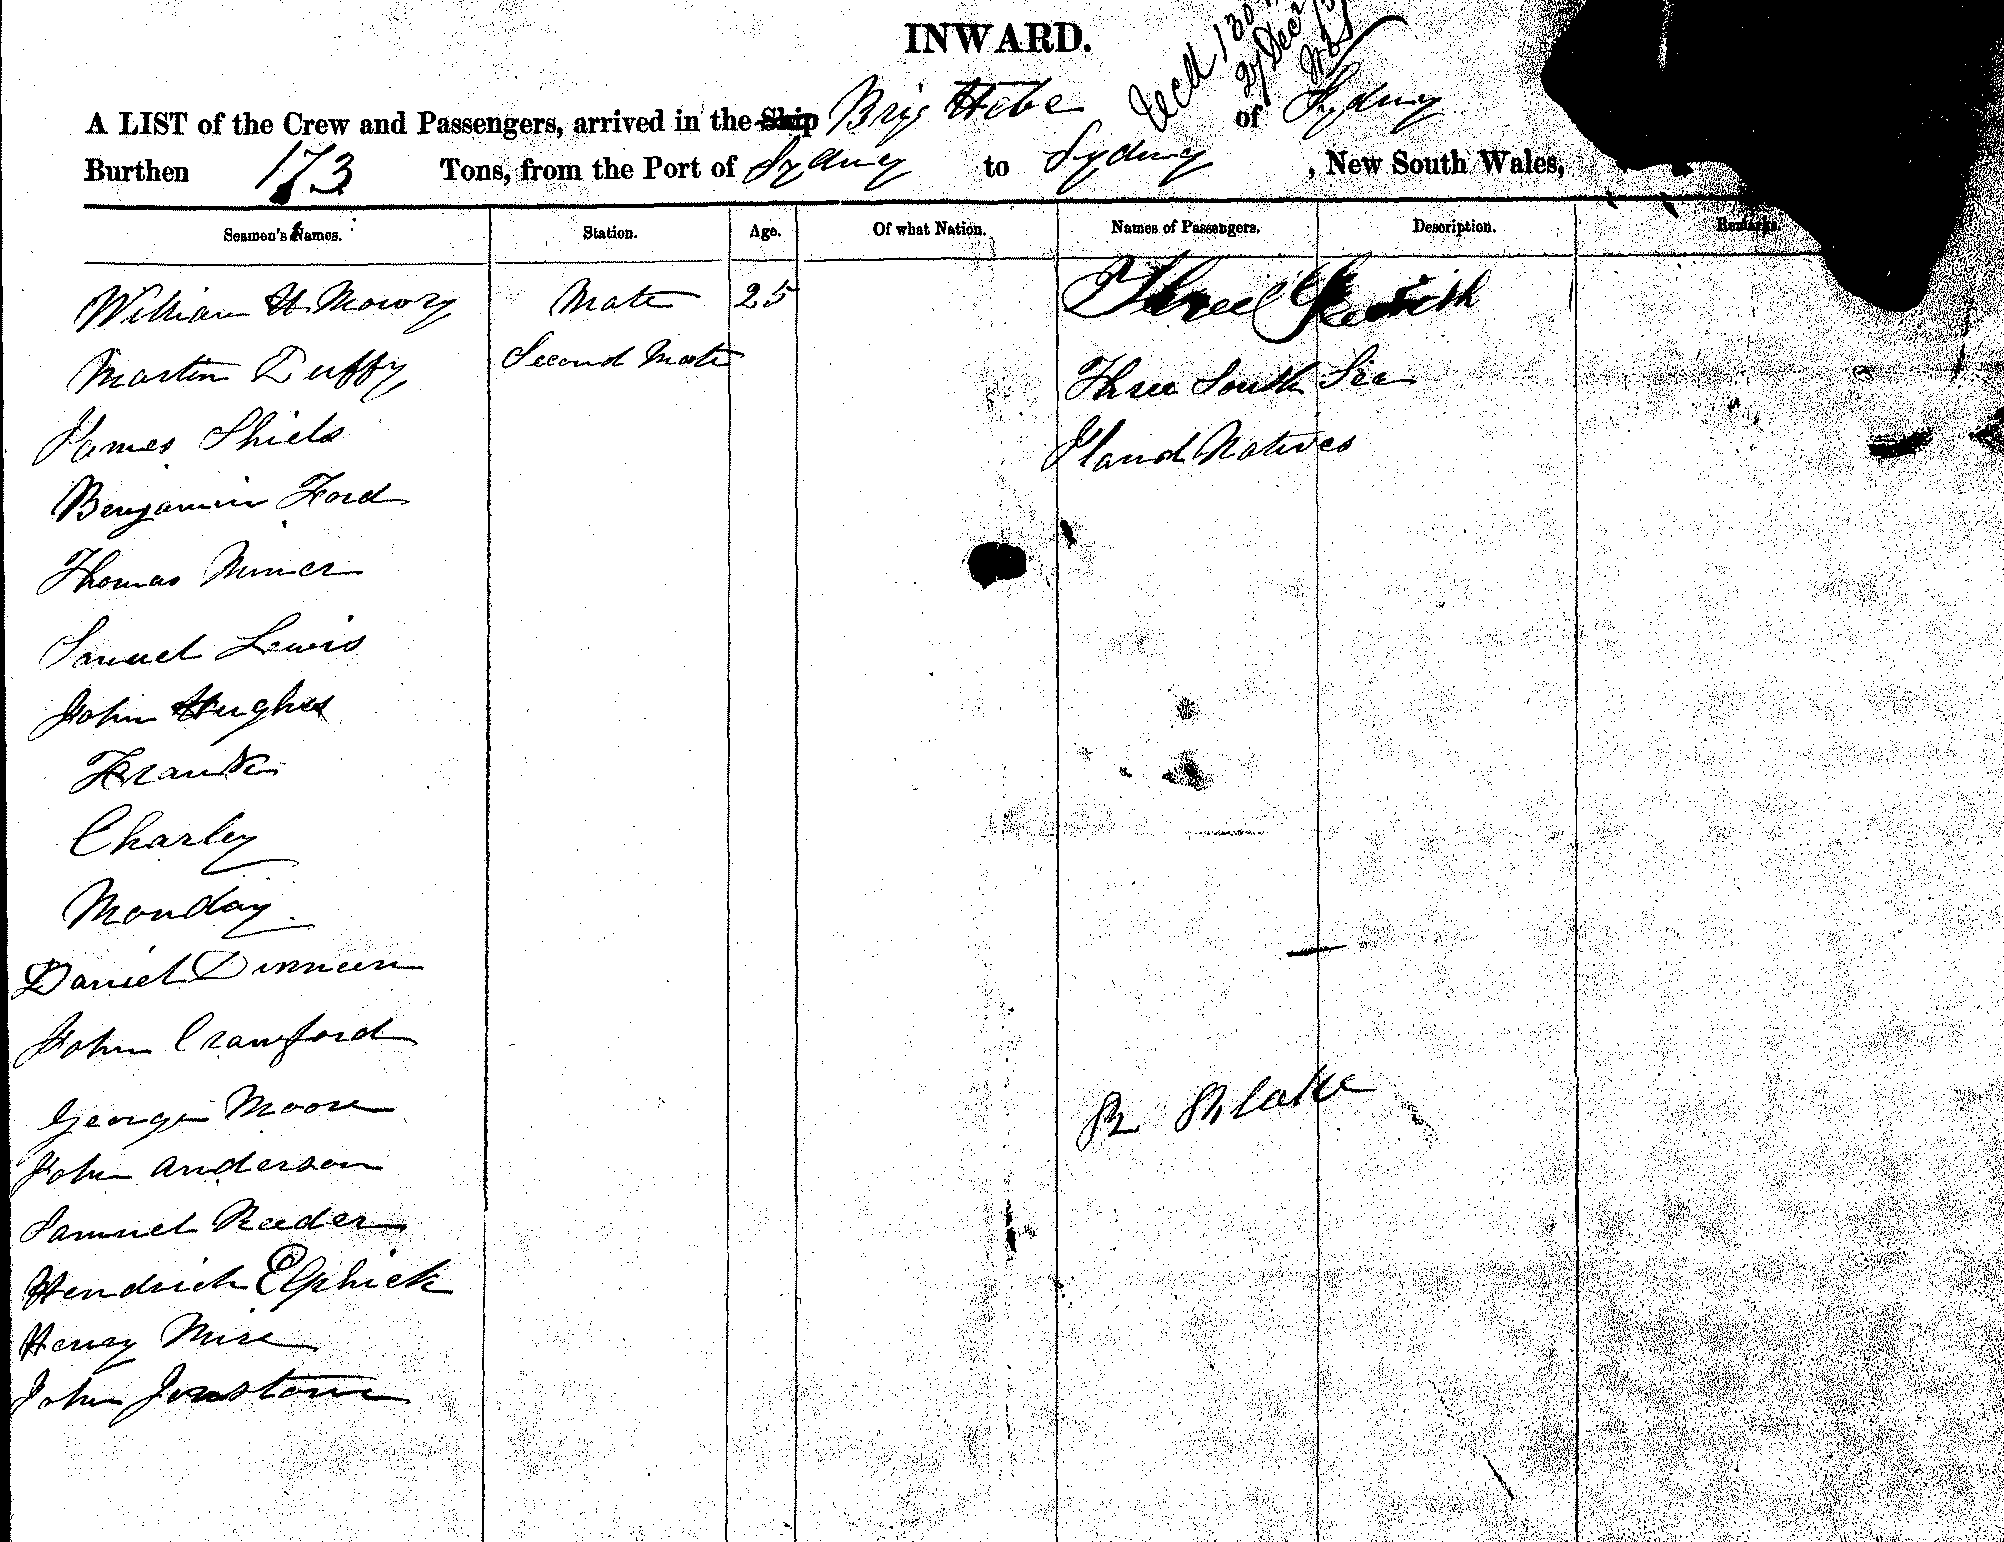 INWARD.
A LIST of the Crew and Passengers, arrived in the Ship Brig Hebe of Sydney
Burthen 173 Tons, from the Port of Sydney to Sydney, New South Wales,
Seamen's Names. Station. Age. Of what Nation. Names of Passengers. Description. Remarks.
William H Mowry Mate 25 Three
Martin Duffy Second Mate Three South Sea
James Shiels Iland Natives
Benjamin Ford
Thomas
Samuel Lewis
John Hughes
Frank
Charley
Monday
Daniel Dinneen
John Crawford
George Moore
R Blake
John Anderson
Samuel Reeder
Hendrick Elphick
Henry
John Jonstone